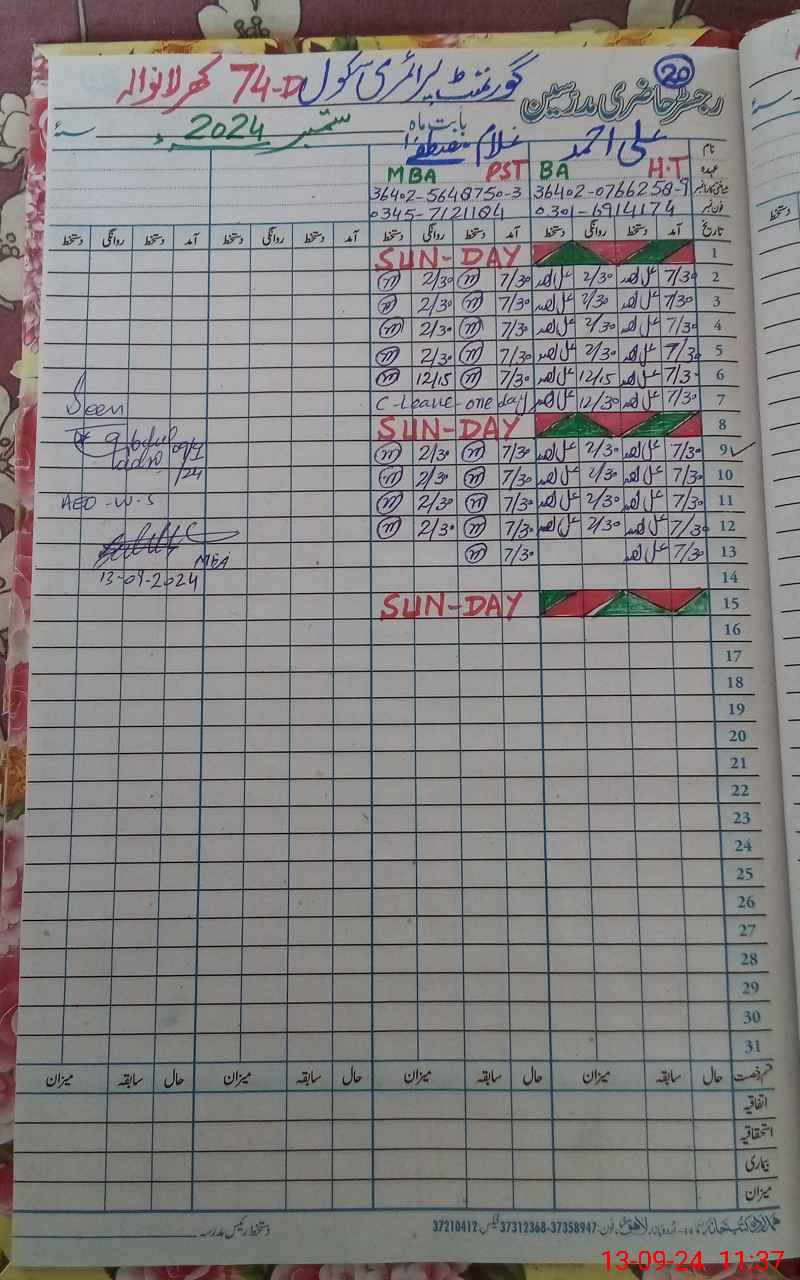 20
گورنمنٹ پرائمری سکول 74-D کھرلانوالہ
رجسٹر حاضری مدرسین
بابت ماہ ستمبر 2024ء سنۂ
نام علی احمد غلام مصطفےٰ
عہدہ H.T BA PST MBA
شناختی کارڈ نمبر 36402-0766258-9 36402-5648750-3
فون نمبر 0301-6914174 0345-7121184
تاریخ آمد دستخط روانگی دستخط آمد دستخط روانگی دستخط آمد دستخط روانگی دستخط آمد دستخط روانگی دستخط
1 SUN-DAY
2 7/30 علی احمد 2/30 علی احمد 7/30 m 2/30 m
3 7/30 علی احمد 2/30 علی احمد 7/30 m 2/30 m
4 7/30 علی احمد 2/30 علی احمد 7/30 m 2/30 m
5 7/30 علی احمد 2/30 علی احمد 7/30 m 2/30 m
6 7/30 علی احمد 12/15 علی احمد 7/30 m 12/15 m
7 7/30 علی احمد 12/30 علی احمد C-Leave-one day
8 SUN-DAY
9 7/30 علی احمد 2/30 علی احمد 7/30 m 2/30 m
10 7/30 علی احمد 2/30 علی احمد 7/30 m 2/30 m
11 7/30 علی احمد 2/30 علی احمد 7/30 m 2/30 m
12 7/30 علی احمد 2/30 علی احمد 7/30 m 2/30 m
13 7/30 علی احمد 7/30 m
14
15 SUN-DAY
16
17
18
19
20
21
22
23
24
25
26
27
28
29
30
31
Seen
09/9
/24
AEO-W-S
MBA
13-09-2024
قسم رخصت حال سابقہ میزان حال سابقہ میزان حال سابقہ میزان حال سابقہ میزان
اتفاقیہ
استحقاقیہ
بیماری
میزان
دستخط رئیس مدرسہ
ہمالہ اردو بازار لاہور فون:37358947-37312368 فیکس:37210412
13-09-24 11:37